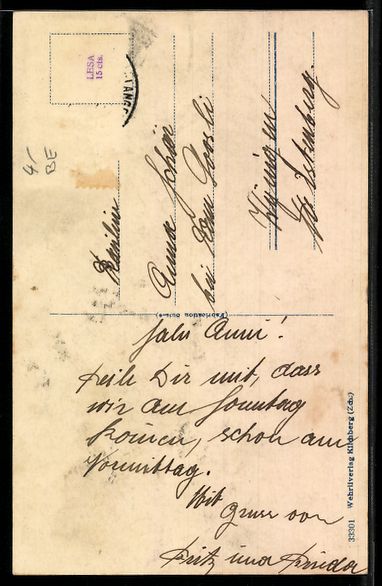 LESA
15 cts.
4.-
BE
Fräulein
Anna
bei Fam.
(Fabrication Suisse)
Anni!
teile Dir mit, dass
wir am Sonntag
kommen, schon am
Vormittag.
Mit
Gruss von
Fritz und Frieda
33301 Wehrliverlag Kilchberg (Zch.)